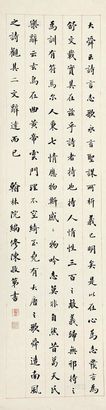 大舜云詩言志歌永言聖謨所析義已明矣是以在心為志發言為
詩舒文載實其在茲乎詩者持也持人情性三百之蔽義歸無邪持之
為訓有符焉爾人稟七情應物斯感感物吟志莫非自然昔葛天
樂辭云玄鳥在曲黃帝雲門理不空綺至堯有大唐之歌舜造南風
之詩觀其二文辭達而已 翰林院編修陳敬第書